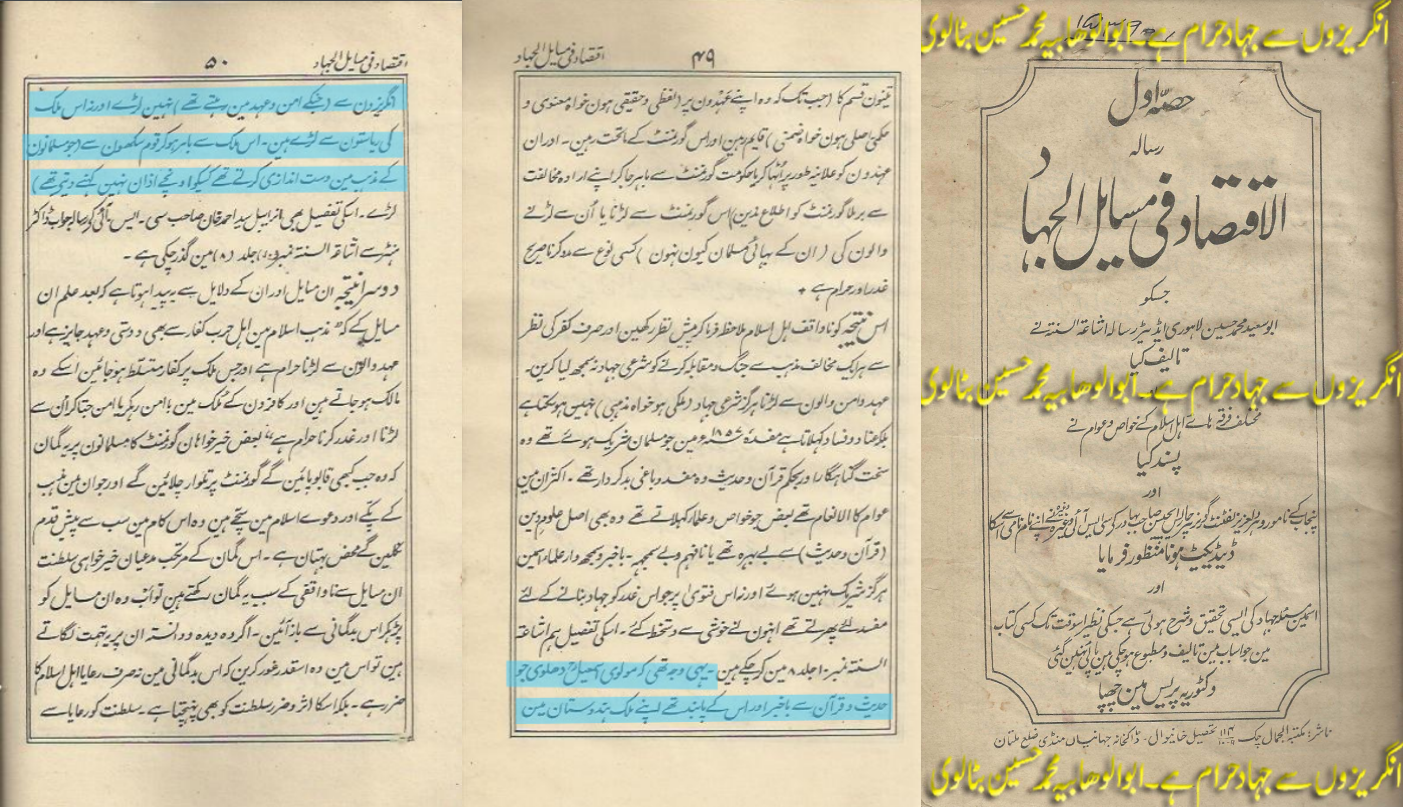 انگریزوں سے جہاد حرام ہے۔ ابوالوھابیہ محمد حسین بٹالوی
حصہ اول
رسالہ
الاقتصاد فی مسایل الجہاد
جسکو
ابو سعید محمد حسین لاہوری ایڈیٹر رسالہ اشاعۃ السنۃ نے
تالیف کیا
انگریزوں سے جہاد حرام ہے۔ ابوالوھابیہ محمد حسین بٹالوی
مختلف فرقہ ہائے اہل اسلام کے خواص و عوام نے
پسند کیا
اور
پنجاب کے نامور ولعزیز لفٹنٹ گورنر سر چارلس ایچیسن صاحب بہادر کے سی ایس آئی وغیرہ نے اپنے نام نامی سے اسکا
ڈیڈیکیٹ ہونا منظور فرمایا
اور
اسمین مسئلہ جہاد کی ایسی تحقیق و شرح ہوئی ہے جسکی نظیر اسوقت تک کسی کتاب
مین جو اس باب مین تالیف و مطبوع ہو چکی ہین پائی نہین گئی
وکٹوریہ پریس مین چھپا
ناشر: مکتبۃ الجمال چک تحصیل خانیوال۔ ڈاکخانہ جہانیاں منڈی ضلع ملتان
انگریزوں سے جہاد حرام ہے۔ ابوالوھابیہ محمد حسین بٹالوی
۴۹ اقتصاد فی مسایل الجہاد
تینون قسم کا (جب تک کہ وہ اپنے عہدون پر (لفظی و حقیقی ہون خواہ معنوی و
حکمی اصلی ہون خواہ ضمنی) قایم رہین اور اس گورنمنٹ کے ماتحت رہین۔ اور ان
عہدون کو علانیہ طور پر اُٹھا کر یا حکومت گورنمنٹ سے باہر جا کر اپنے ارادہ مخالفت
سے برملا گورنمنٹ کو اطلاع ندین) اس گورنمنٹ سے لڑنا یا اُن سے لڑنے
والون کی (ان کے بہائی مسلمان کیون نہون) کسی نوع سے مدد کرنا صریح
غدر اور حرام ہے +
اس نتیجہ کو ناواقف اہل اسلام ملاحظہ فرما کر پیش نظر رکھین اور صرف کفر کی نظر
سے ہر ایک مخالف مذہب سے جنگ و مقابلہ کرنے کو شرعی جہاد نہ سمجھ لیا کرین۔
عہد و امن والون سے لڑنا ہرگز شرعی جہاد (ملکی ہو خواہ مذہبی) نہیں ہو سکتا ہے
بلکہ عناد و فساد کہلاتا ہے مفسدہ ۱۸۵۷ء مین جو مسلمان شریک ہوئے تھے وہ
سخت گناہگار اور بحکم قرآن و حدیث وہ مفسد و باغی بدکردار تھے۔ اکثر ان مین
عوام کالانعام تھے بعض جو خواص و علماء کہلاتے تھے وہ بھی اصل علوم دین
(قرآن و حدیث) سے بے بہرہ تھے یا نافہم و بے سمجہہ۔ باخبر و سمجھدار علماء اسمین
ہرگز شریک نہین ہوئے اور نہ اس فتویٰ پر جو اس غدر کو جہاد بنانے کے لئے
مفسد لئے پھرتے تھے انہون نے خوشی سے دستخط کئے۔ اسکی تفصیل ہم اشاعۃ
السنۃ نمبر ۱۰ جلد ۸ مین کر چکے ہین۔ یہی وجہ تھی کہ مولوی اسمٰعیل دہلوی جو
حدیث و قرآن سے باخبر اور اس کے پابند تھے اپنے ملک ہندوستان مین
۵۰ اقتصاد فی مسایل الجہاد
انگریزون سے (جنکے امن و عہد مین رہتے تھے) نہین لڑے اور نہ اس ملک
کی ریاستون سے لڑے ہین۔ اس ملک سے باہر ہو کر قوم سکھون سے (جو مسلمانون
کے مذہب مین دست اندازی کرتے تھے کسیکو اونچے اذان نہین کہنے دیتے تھے)
لڑے۔ اسکی تفصیل بھی انریبل سید احمد خان صاحب سی۔ ایس۔ آئی کے رسالہ جواب ڈاکٹر
ہنٹر سے اشاعۃ السنۃ نمبر جلد (۸) مین گذر چکی ہے۔
دوسرا نتیجہ ان مسایل اور ان کے دلایل سے یہ پیدا ہوتا ہے کہ بعد علم ان
مسایل کے کہ مذہب اسلام مین اہل حرب کفار سے بھی دوستی و عہد جایز ہے اور
عہد والون سے لڑنا حرام ہے اور جس ملک پر کفار متسلط ہو جائین اسکے وہ
مالک ہو جاتے ہین اور کافرون کے ملک مین باامن رہکر یا امن جتا کر اُن سے
لڑنا اور غدر کرنا حرام ہے" بعض خیرخواہان گورنمنٹ کا مسلمانون پر یہ گمان
کہ وہ جب کبھی قابو پائین گے گورنمنٹ پر تلوار چلائین گے اور جو ان مین مذہب
کے پکے اور دعوے اسلام مین سچے ہین وہ اس کام مین سب سے پیش قدم
نکلین گے محض بہتان ہے۔ اس گمان کے مرتکب مدعیان خیرخواہی سلطنت
ان مسایل سے ناواقفی کے سبب یہ گمان رکھتے ہین تو اب وہ ان مسایل کو
پڑہکر اس بدگمانی سے باز آئین۔ اگر وہ دیدہ و دانستہ ان پر یہ تہمت لگاتے
ہین تو اس مین وہ اسقدر غور کرین کہ اس بدگمانی مین نہ صرف رعایا اہل اسلام کا
ضرر ہے۔ بلکہ اسکا اثر و ضرر سلطنت کو بھی پہنچتا ہے۔ سلطنت کو رعایا سے